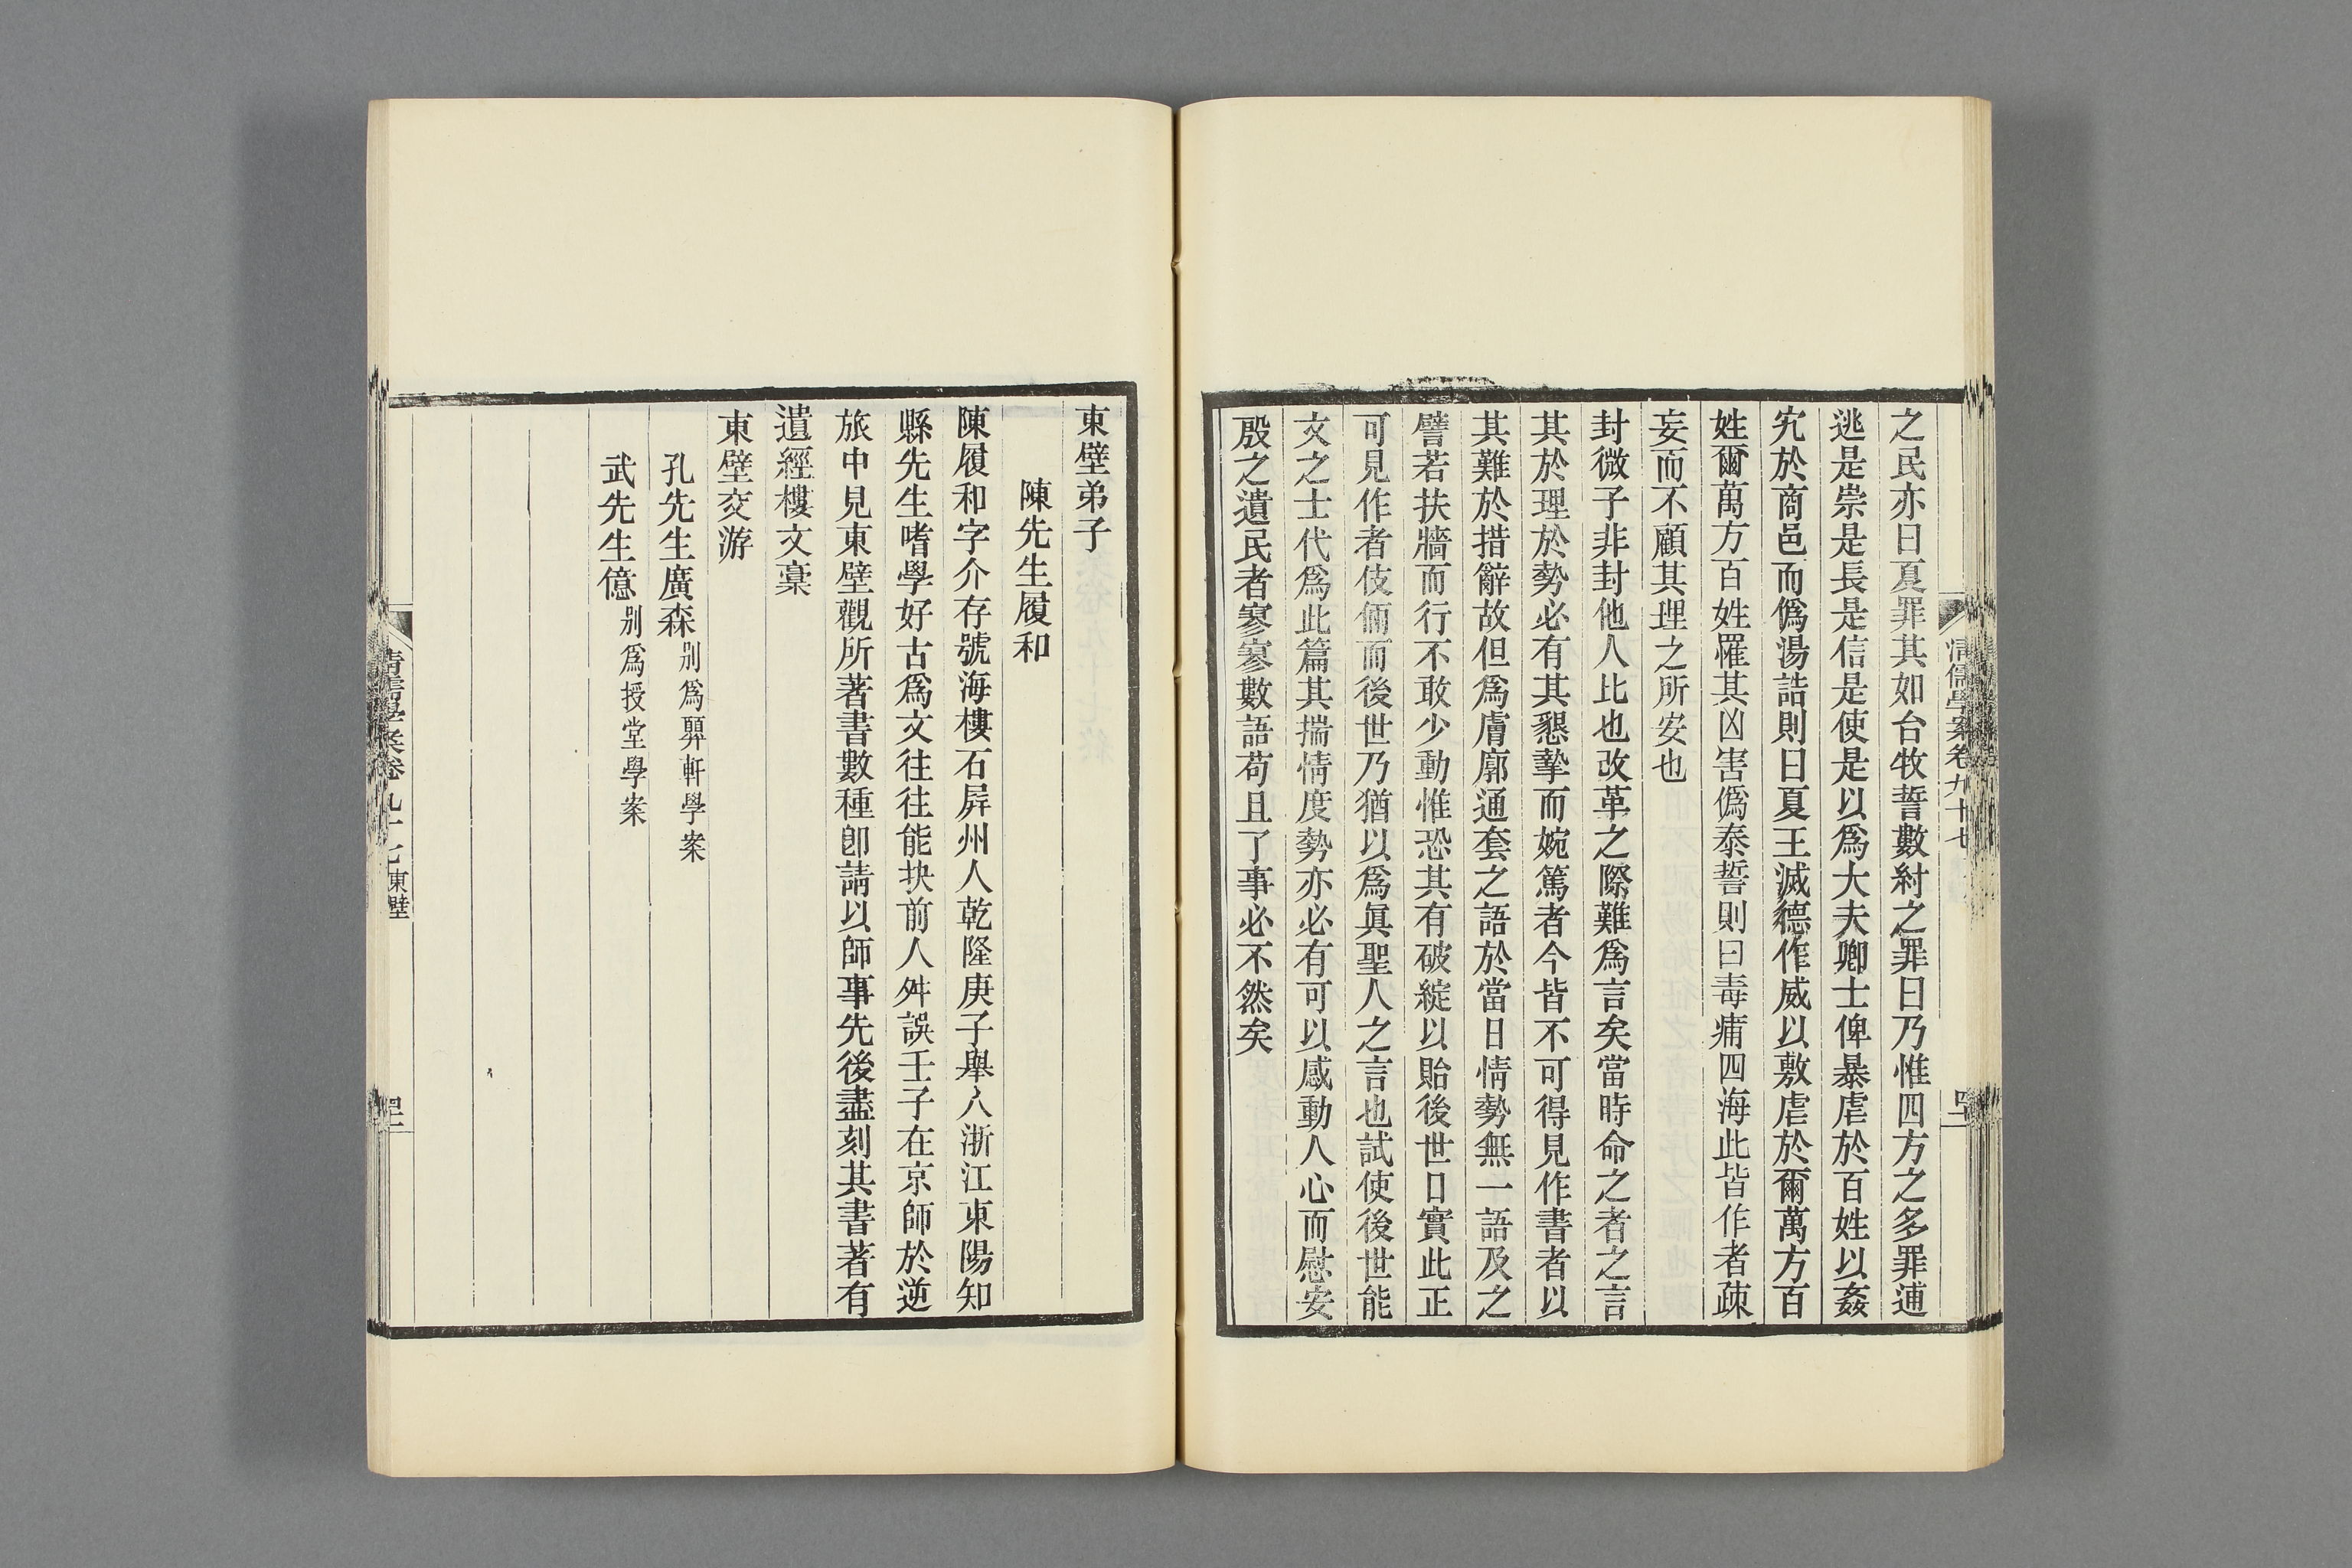 之民亦曰夏罪其如台牧誓數紂之罪曰乃惟四方之多罪逋
逃是崇是長是信是使是以爲大夫卿士俾暴虐於百姓以姦
宄於商邑而僞湯誥則曰夏王滅德作威以敷虐於爾萬方百
姓爾萬方百姓罹其凶害僞泰誓則曰毒痡四海此皆作者疎
妄而不顧其理之所安也
封微子非封他人比也改革之際難爲言矣當時命之者之言
其於理於勢必有其懇摯而婉篤者今皆不可得見作書者以
其難於措辭故但爲膚廓通套之語於當日情勢無一語及之
譬若扶牆而行不敢少動惟恐其有破綻以貽後世口實此正
可見作者伎倆而後世乃猶以爲眞聖人之言也試使後世能
文之士代爲此篇其揣情度勢亦必有可以感動人心而慰安
殷之遺民者寥寥數語苟且了事必不然矣
清儒學案卷九十七
東壁弟子
陳先生履和
陳履和字介存號海樓石屛州人乾隆庚子舉人浙江東陽知
縣先生嗜學好古爲文往往能抉前人舛誤壬子在京師於逆
旅中見東壁觀所著書數種卽請以師事先後盡刻其書著有
遺經樓文稾
東壁交游
孔先生廣森別爲顨軒學案
武先生億別爲授堂學案
清儒學案卷九十七東壁